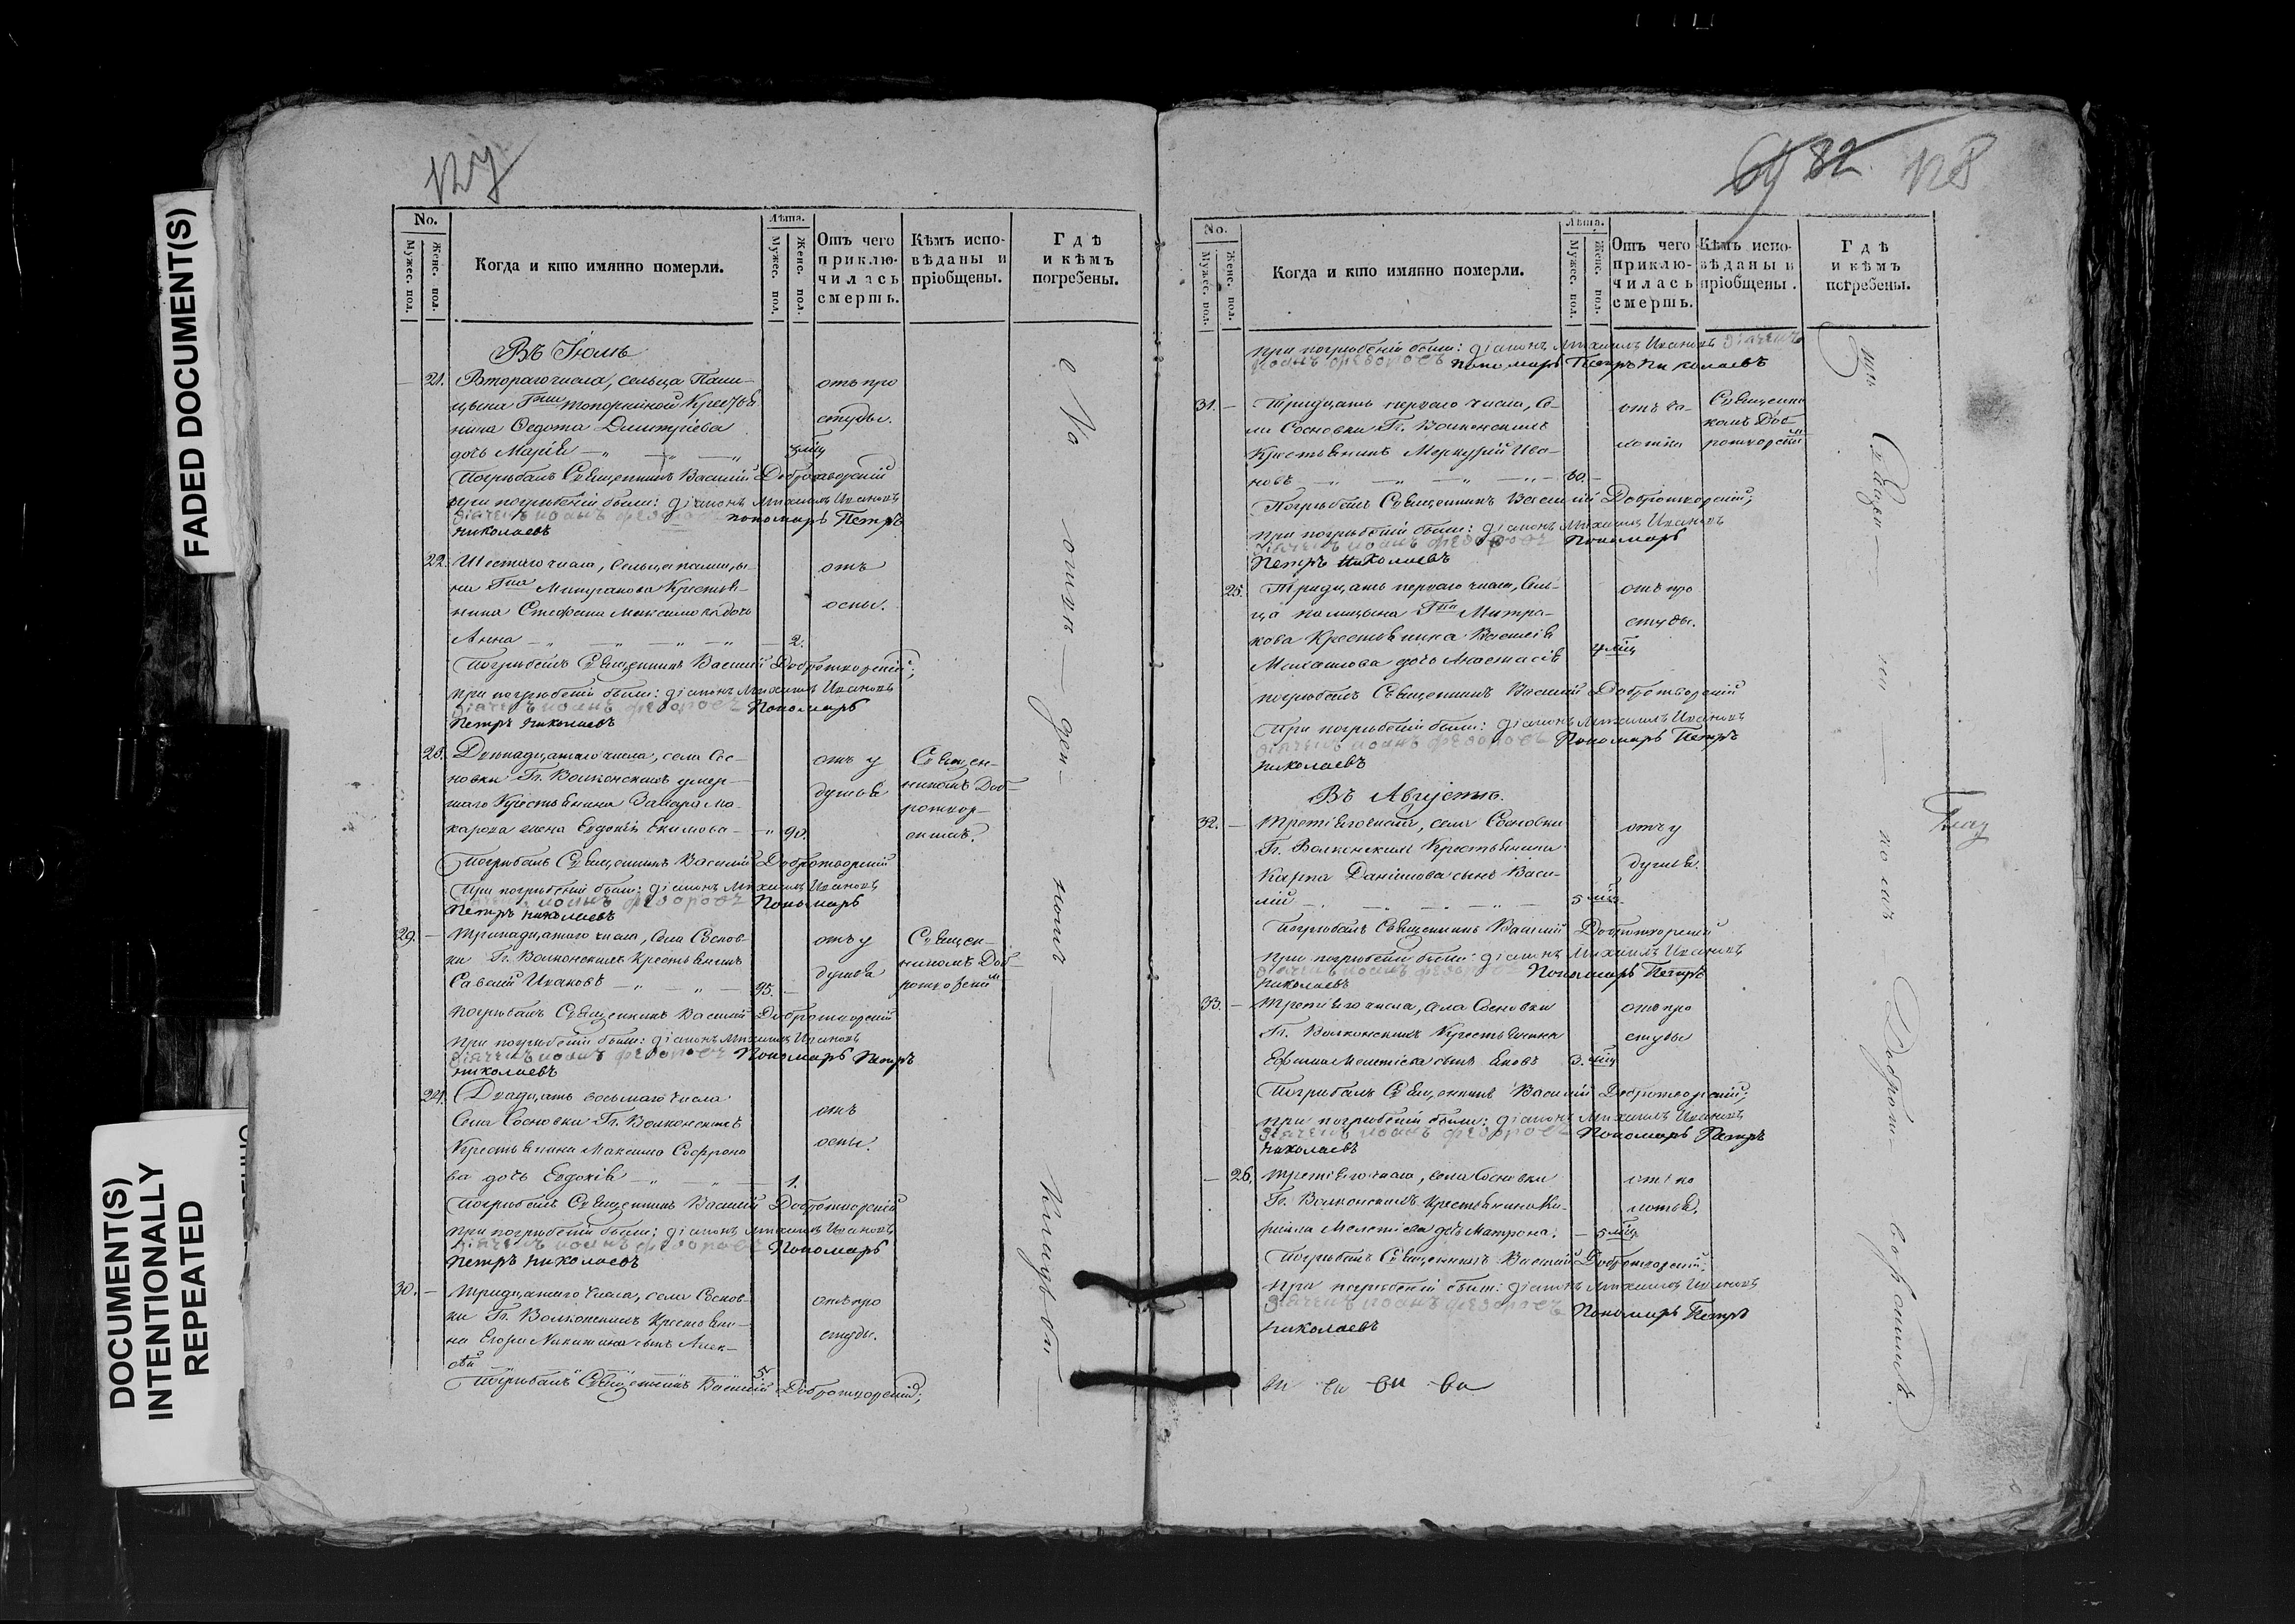 FADED DOCUMENT(S)
DOCUMENT(S)
INTENTIONALLY
REPEATED
127
No.
Мужес. пол.
Женс. пол.
Когда и кто имянно померли.
Лѣта.
Мужес. пол.
Женс. пол.
Отъ чего приклю-
чилась
смерть.
Кѣмъ испо-
вѣданы и
пріобщены.
Гдѣ
и кѣмъ
погребены.
Въ Іюлѣ
21. Втораго числа, сельца
Топорниной Крестья
нина Ѳедота Димитріева
дочь Марія
отъ про
студы.
Погребалъ Священникъ Василій Добротворскій
при погребеніи были: діаконъ Михаилъ Ивановъ
діачекъ иоанъ феодоровъ пономарь Петръ
николаевъ
22. Шестаго числа, сельца
Крестья-
нина Стефана Максимова дочь
Анна 2.
отъ
оспы.
Погребалъ Священникъ Василій Добротворскій;
при погребеніи были: діаконъ Михаилъ Ивановъ
діачекъ иоанъ феодоровъ Пономарь
Петръ николаевъ
23. Двенадцатаго числа, села Сос-
новки Гг. Волконскихъ умер-
шаго Крестьянина Захара Ма-
карова жена Евдокія Екимова 90.
отъ у
душья
Священ-
никомъ Доб-
ротвор-
скимъ.
Погребалъ Священникъ Василій Добротворскій
При погребеніи были: діаконъ Михаилъ Ивановъ
діачекъ иоанъ феодоровъ Пономарь
Петръ николаевъ
29. Тринадцатаго числа, села Соснов-
ки Гг. Волконскихъ Крестьянинъ
Савелій Ивановъ 95.
отъ у
душья
Священ-
никомъ Доб-
ротворскимъ
Погребалъ Священникъ Василій Добротворскій
При погребеніи были: діаконъ Михаилъ Ивановъ
діачекъ иоанъ феодоровъ Пономарь Петръ
николаевъ
24. Двадцать восьмаго числа
Села Сосновки Гг. Волконскихъ
Крестьянина Максима Софроно
ва дочь Евдокія 1.
отъ
оспы.
Погребалъ Священникъ Василій Добротворскій
При погребеніи были: діаконъ Михаилъ Ивановъ
діачекъ иоанъ феодоровъ Пономарь
Петръ николаевъ
30. Тридцатаго числа, села Соснов-
ки Гг. Волконскихъ Крестьяни-
на Егора Никитина сынъ Алек-
сѣй 5.
отъ про
студы.
Погребалъ Священникъ Василій Добротворскій;
На
128
82
No.
Мужес. пол.
Женс. пол.
Когда и кто имянно померли.
Лѣта.
Мужес. пол.
Женс. пол.
Отъ чего
приклю-
чилась
смерть.
Кѣмъ испо-
вѣданы и
пріобщены.
Гдѣ
и кѣмъ
погребены.
при погребеніи были: діаконъ Михаилъ Ивановъ діачекъ
иоанъ феодоровъ пономарь Петръ николаевъ
31. Тридцать перваго числа, Се-
ла Сосновки Гг. Волконскихъ
Крестьянинъ Меркурій Ива-
новъ 60.
Священни
комъ Доб-
ротворскимъ
Погребалъ Священникъ Василій Добротворскій;
при погребеніи были: діаконъ Михаилъ Ивановъ
діачекъ иоанъ феодоровъ Пономарь
Петръ николаевъ
25. Тридцать перваго числа, Сель-
ца
Крестьянина Василія
Михайлова дочь Анастасія 4 мѣц
отъ про
студы.
погребалъ Священникъ Василій Добротворскій
При погребеніи были: діаконъ Михаилъ Ивановъ
діачекъ иоанъ феодоровъ Пономарь Петръ
николаевъ
Въ Августѣ.
32. Третьяго числа, села Сосновки
Гг. Волконскихъ Крестьянина
Карпа Данилова сынъ Васи-
лій 5 мѣц.
отъ у
душья.
Погребалъ Священникъ Василій Добротворскій
при погребеніи были: діаконъ Михаилъ Ивановъ
діачекъ иоанъ феодоровъ Пономарь Петръ
николаевъ
33. Третьяго числа, села Сосновки
Гг. Волконскихъ Крестьянина
Мелетіева сынъ 3. мѣц
отъ про
студы
Погребалъ Священникъ Василій Добротворскій;
при погребеніи были: діаконъ Михаилъ Ивановъ
діачекъ иоанъ феодоровъ Пономарь Петръ
николаевъ
26. Третьяго числа, села Сосновки
Гг. Волконскихъ Крестьянина
Мелетіева дочь Матрона. 5 мѣц
Погребалъ Священникъ Василій Добротворскій.
При погребеніи были: діаконъ Михаилъ Ивановъ
діачекъ иоанъ феодоровъ Пономарь Петръ
николаевъ